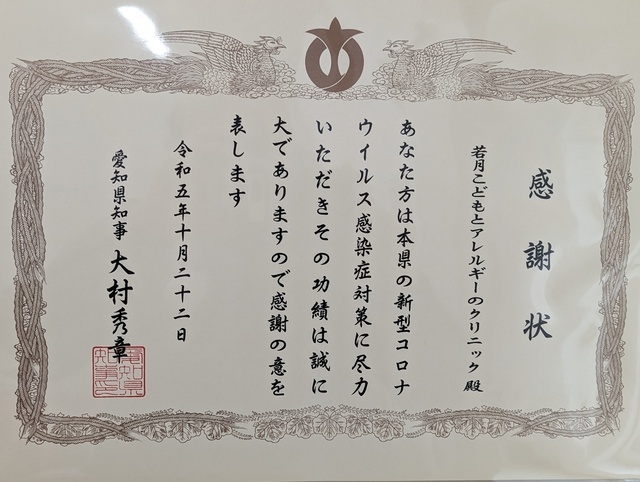 感謝状
若月こどもとアレルギーのクリニック 殿
あなた方は本県の新型コロナ
ウイルス感染症対策に尽力
いただきその功績は誠に
大でありますので感謝の意を
表します
令和五年十月二十二日
愛知県知事 大村秀章